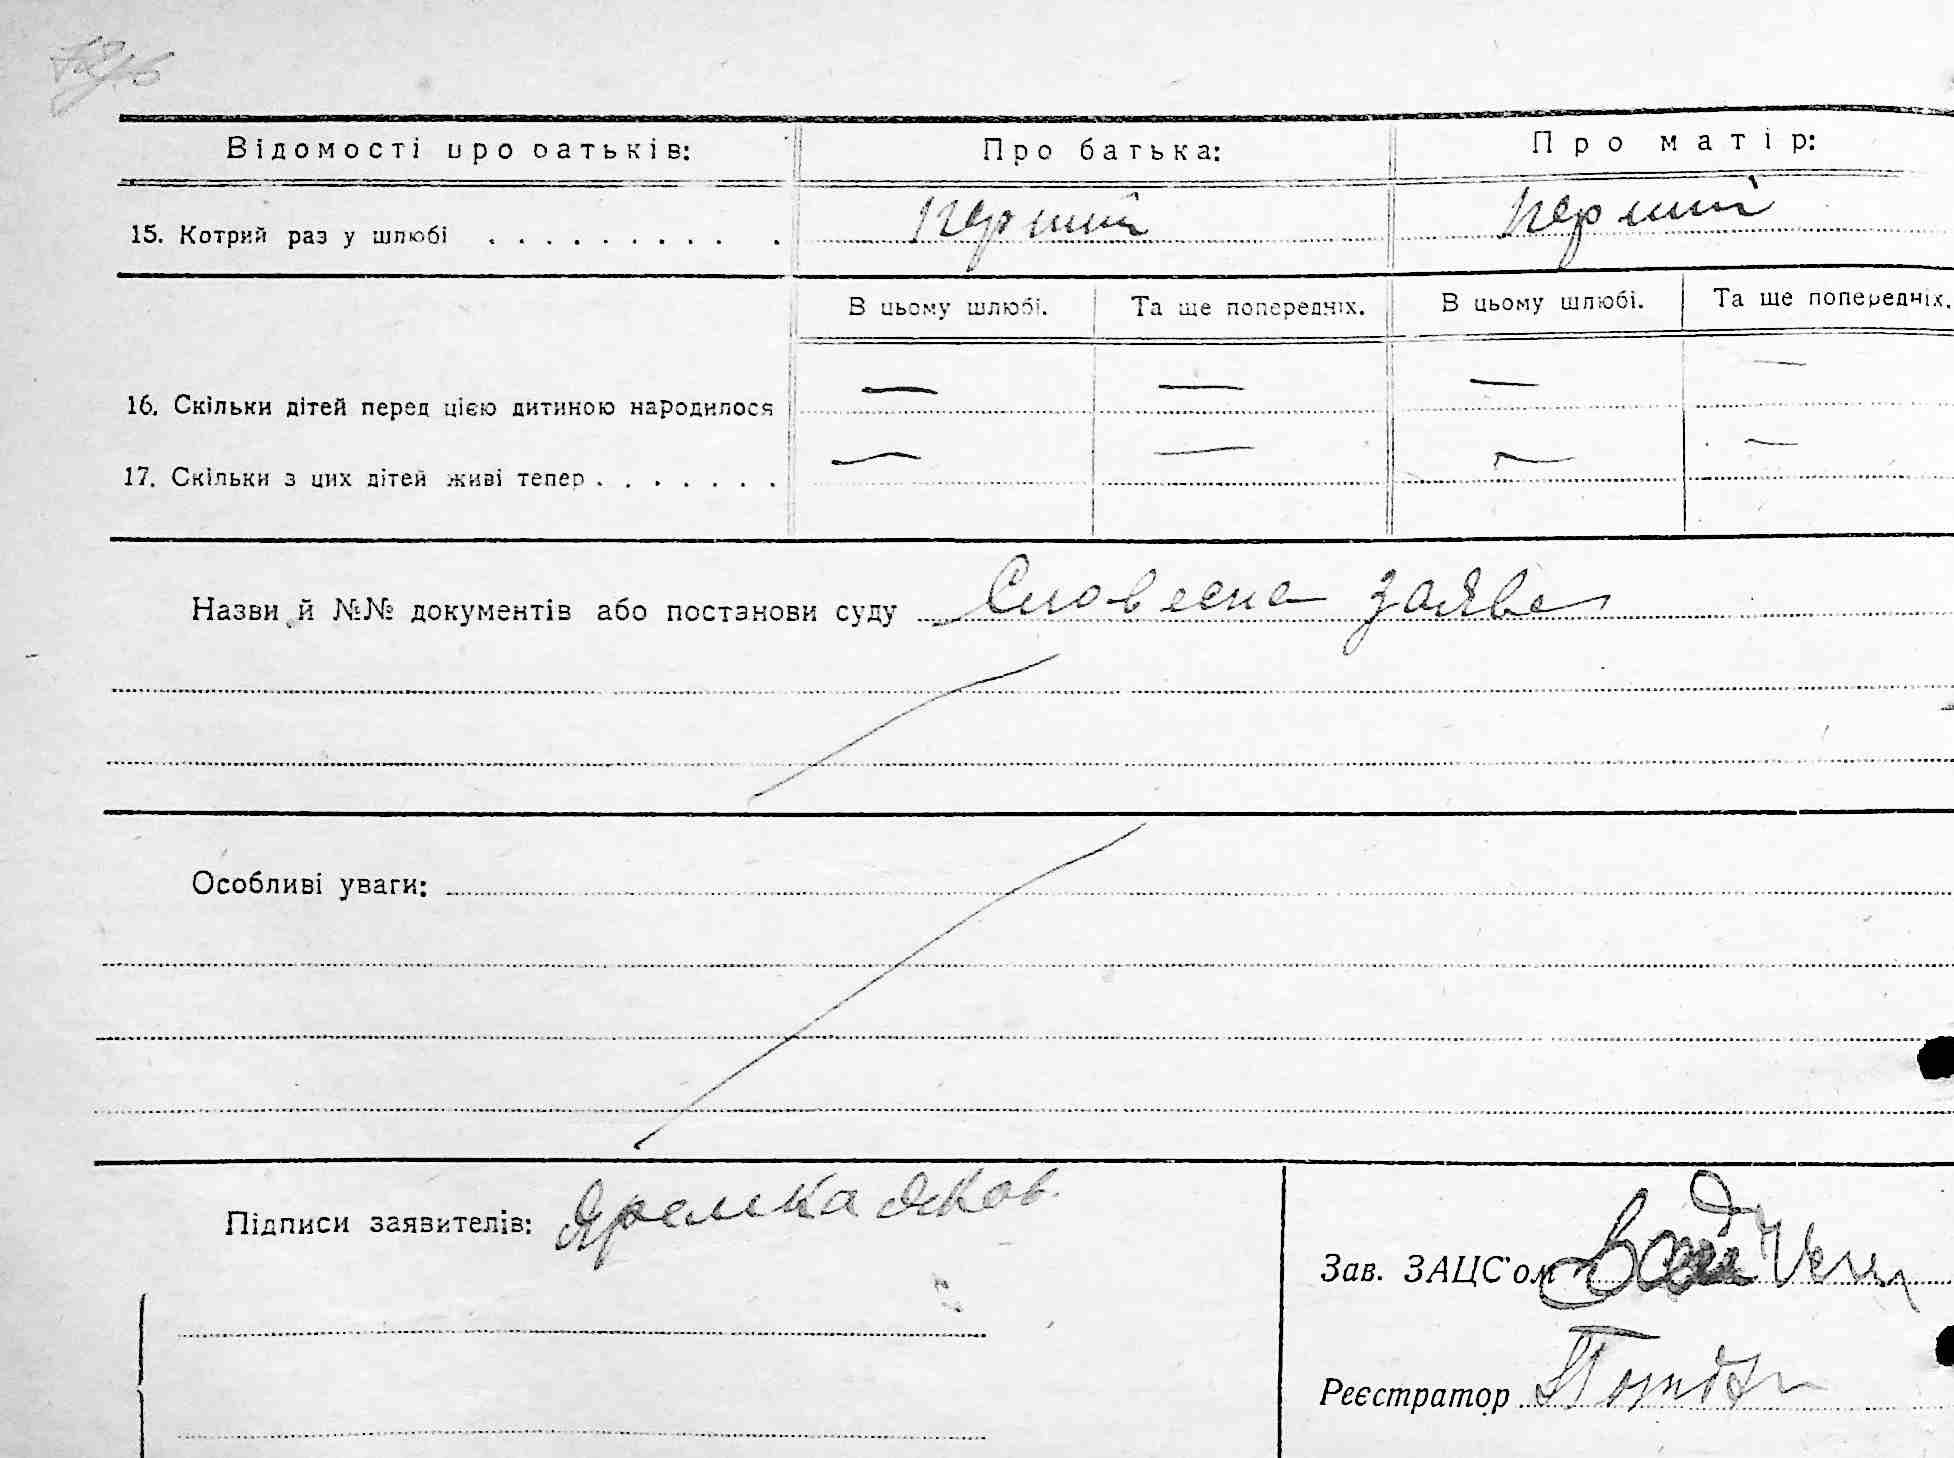 Відомості про батьків: Про батька: Про матір:
15. Котрий раз у шлюбі . . . . . . . . . . перший перший
В цьому шлюбі. Та ще попередніх. В цьому шлюбі. Та ще попередніх.
16. Скільки дітей перед цією дитиною народилося — — — —
17. Скільки з цих дітей живі тепер . . . . . . . — — — —
Назви й №№ документів або постанови суду Словесна заява
Особливі уваги:
Підписи заявителів: Яремка Яков.
Зав. ЗАЦС'ом
Реєстратор